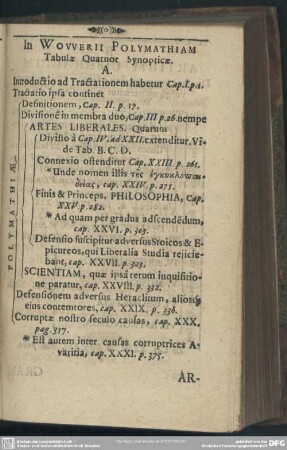 In WOVVERII POLYMATHIAM
Tabulæ Quatuor Synopticæ.
A.
Introductio ad Tractationem habetur Cap. I. p. 1.
Tractatio ipsa continet
POLYMATHIÆ
Definitionem, Cap. II. p. 17.
Divisionē in membra duo, Cap. III p. 26. nempe
ARTES LIBERALES. Quarum
Divisio à Cap. IV. ad XXII. extenditur. Vi-
de Tab. B. C. D.
Connexio ostenditur Cap. XXIII. p. 261.
* Unde nomen illis τῆς ἐγκυκλοπαι-
δείας, cap. XXIV. p. 275.
Finis & Princeps, PHILOSOPHIA, Cap.
XXV. p. 282.
* Ad quam per gradus adscendēdum,
cap. XXVI. p. 303.
Defensio suscipitur adversus Stoicos & E-
picureos, qui Liberalia Studia rejicie-
bant, cap. XXVII. p. 323.
SCIENTIAM, quæ ipsa rerum inquisitio-
ne paratur, cap. XXVIII. p. 332.
Defensionem adversus Heraclitum, aliosq́;
eius contemtores, cap. XXIX. p. 336.
Corruptæ nostro seculo causas, cap. XXX.
pag. 357.
* Est autem inter causas corruptrices A-
varitia, cap. XXXI. p. 375.
AR-